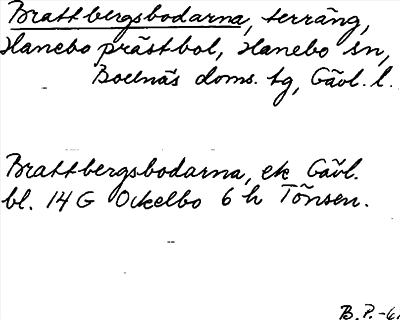 Brattbergsbodarna, terräng,
Hanebo prästbol, Hanebo sn,
Bollnäs doms. tg, Gävl. l.
Brattbergsbodarna, ek Gävl.
bl. 14 G Ockelbo 6 h Tönsen.
B.P.-6